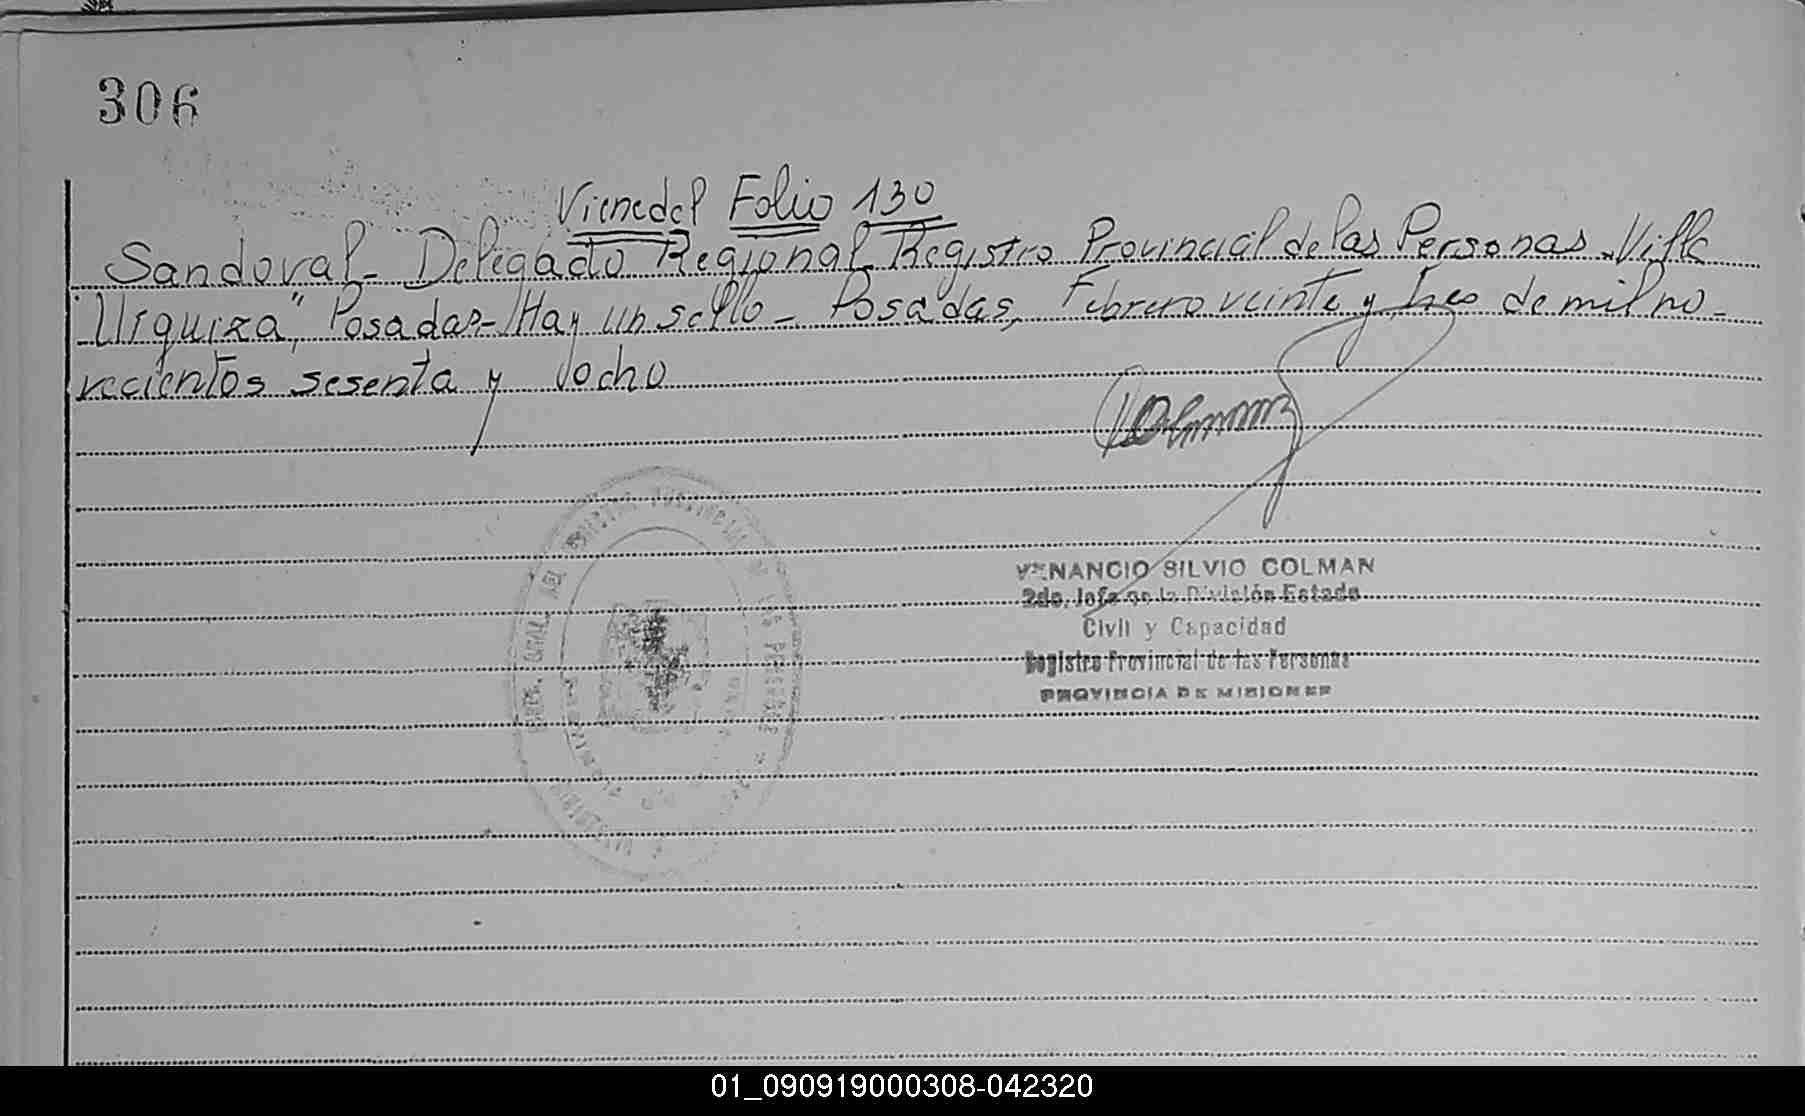 306
Viene del Folio 130
Sandoval - Delegado Regional Registro Provincial de las Personas "Villa
Urquiza", Posadas - Hay un sello - Posadas, Febrero veinte y tres de mil no-
vecientos sesenta y ocho
VENANCIO SILVIO COLMAN
2do. Jefe de la División Estado
Civil y Capacidad
Registro Provincial de las Personas
PROVINCIA DE MISIONES
01_090919000308-042320